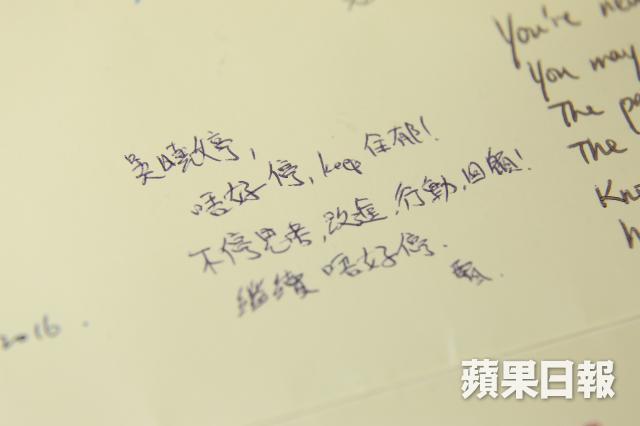 吳曦婷,
唔好停, keep 住郁!
不停思考,改進,行動,回顧!
繼續唔好停.
2016.
You're
You may
The
The
蘋果日報